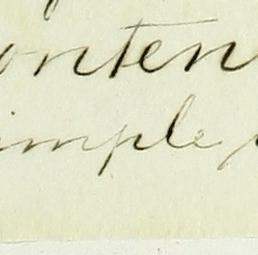 onten
imple